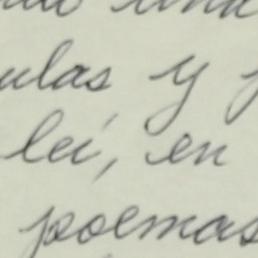 una
ulas y
leí, en
poemas